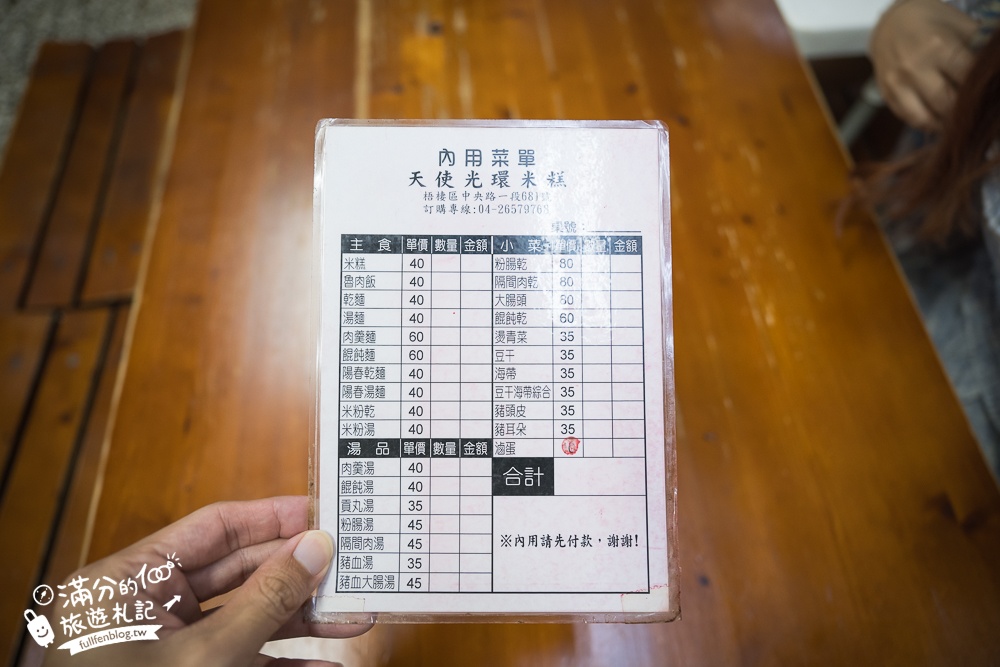 內用菜單
天使光環米糕
梧棲區中央路一段681號
訂購專線:04-26579768
桌號:
主 食 單價 數量 金額
米糕 40
魯肉飯 40
乾麵 40
湯麵 40
肉羹麵 60
餛飩麵 60
陽春乾麵 40
陽春湯麵 40
米粉乾 40
米粉湯 40
湯 品 單價 數量 金額
肉羹湯 40
餛飩湯 40
貢丸湯 35
粉腸湯 45
隔間肉湯 45
豬血湯 35
豬血大腸湯 45
小 菜 單價 數量 金額
粉腸乾 80
隔間肉乾 80
大腸頭 80
餛飩乾 60
燙青菜 35
豆干 35
海帶 35
豆干海帶綜合 35
豬頭皮 35
豬耳朵 35
滷蛋
合計
※內用請先付款，謝謝!
滿分的
旅遊札記
fullfenblog.tw